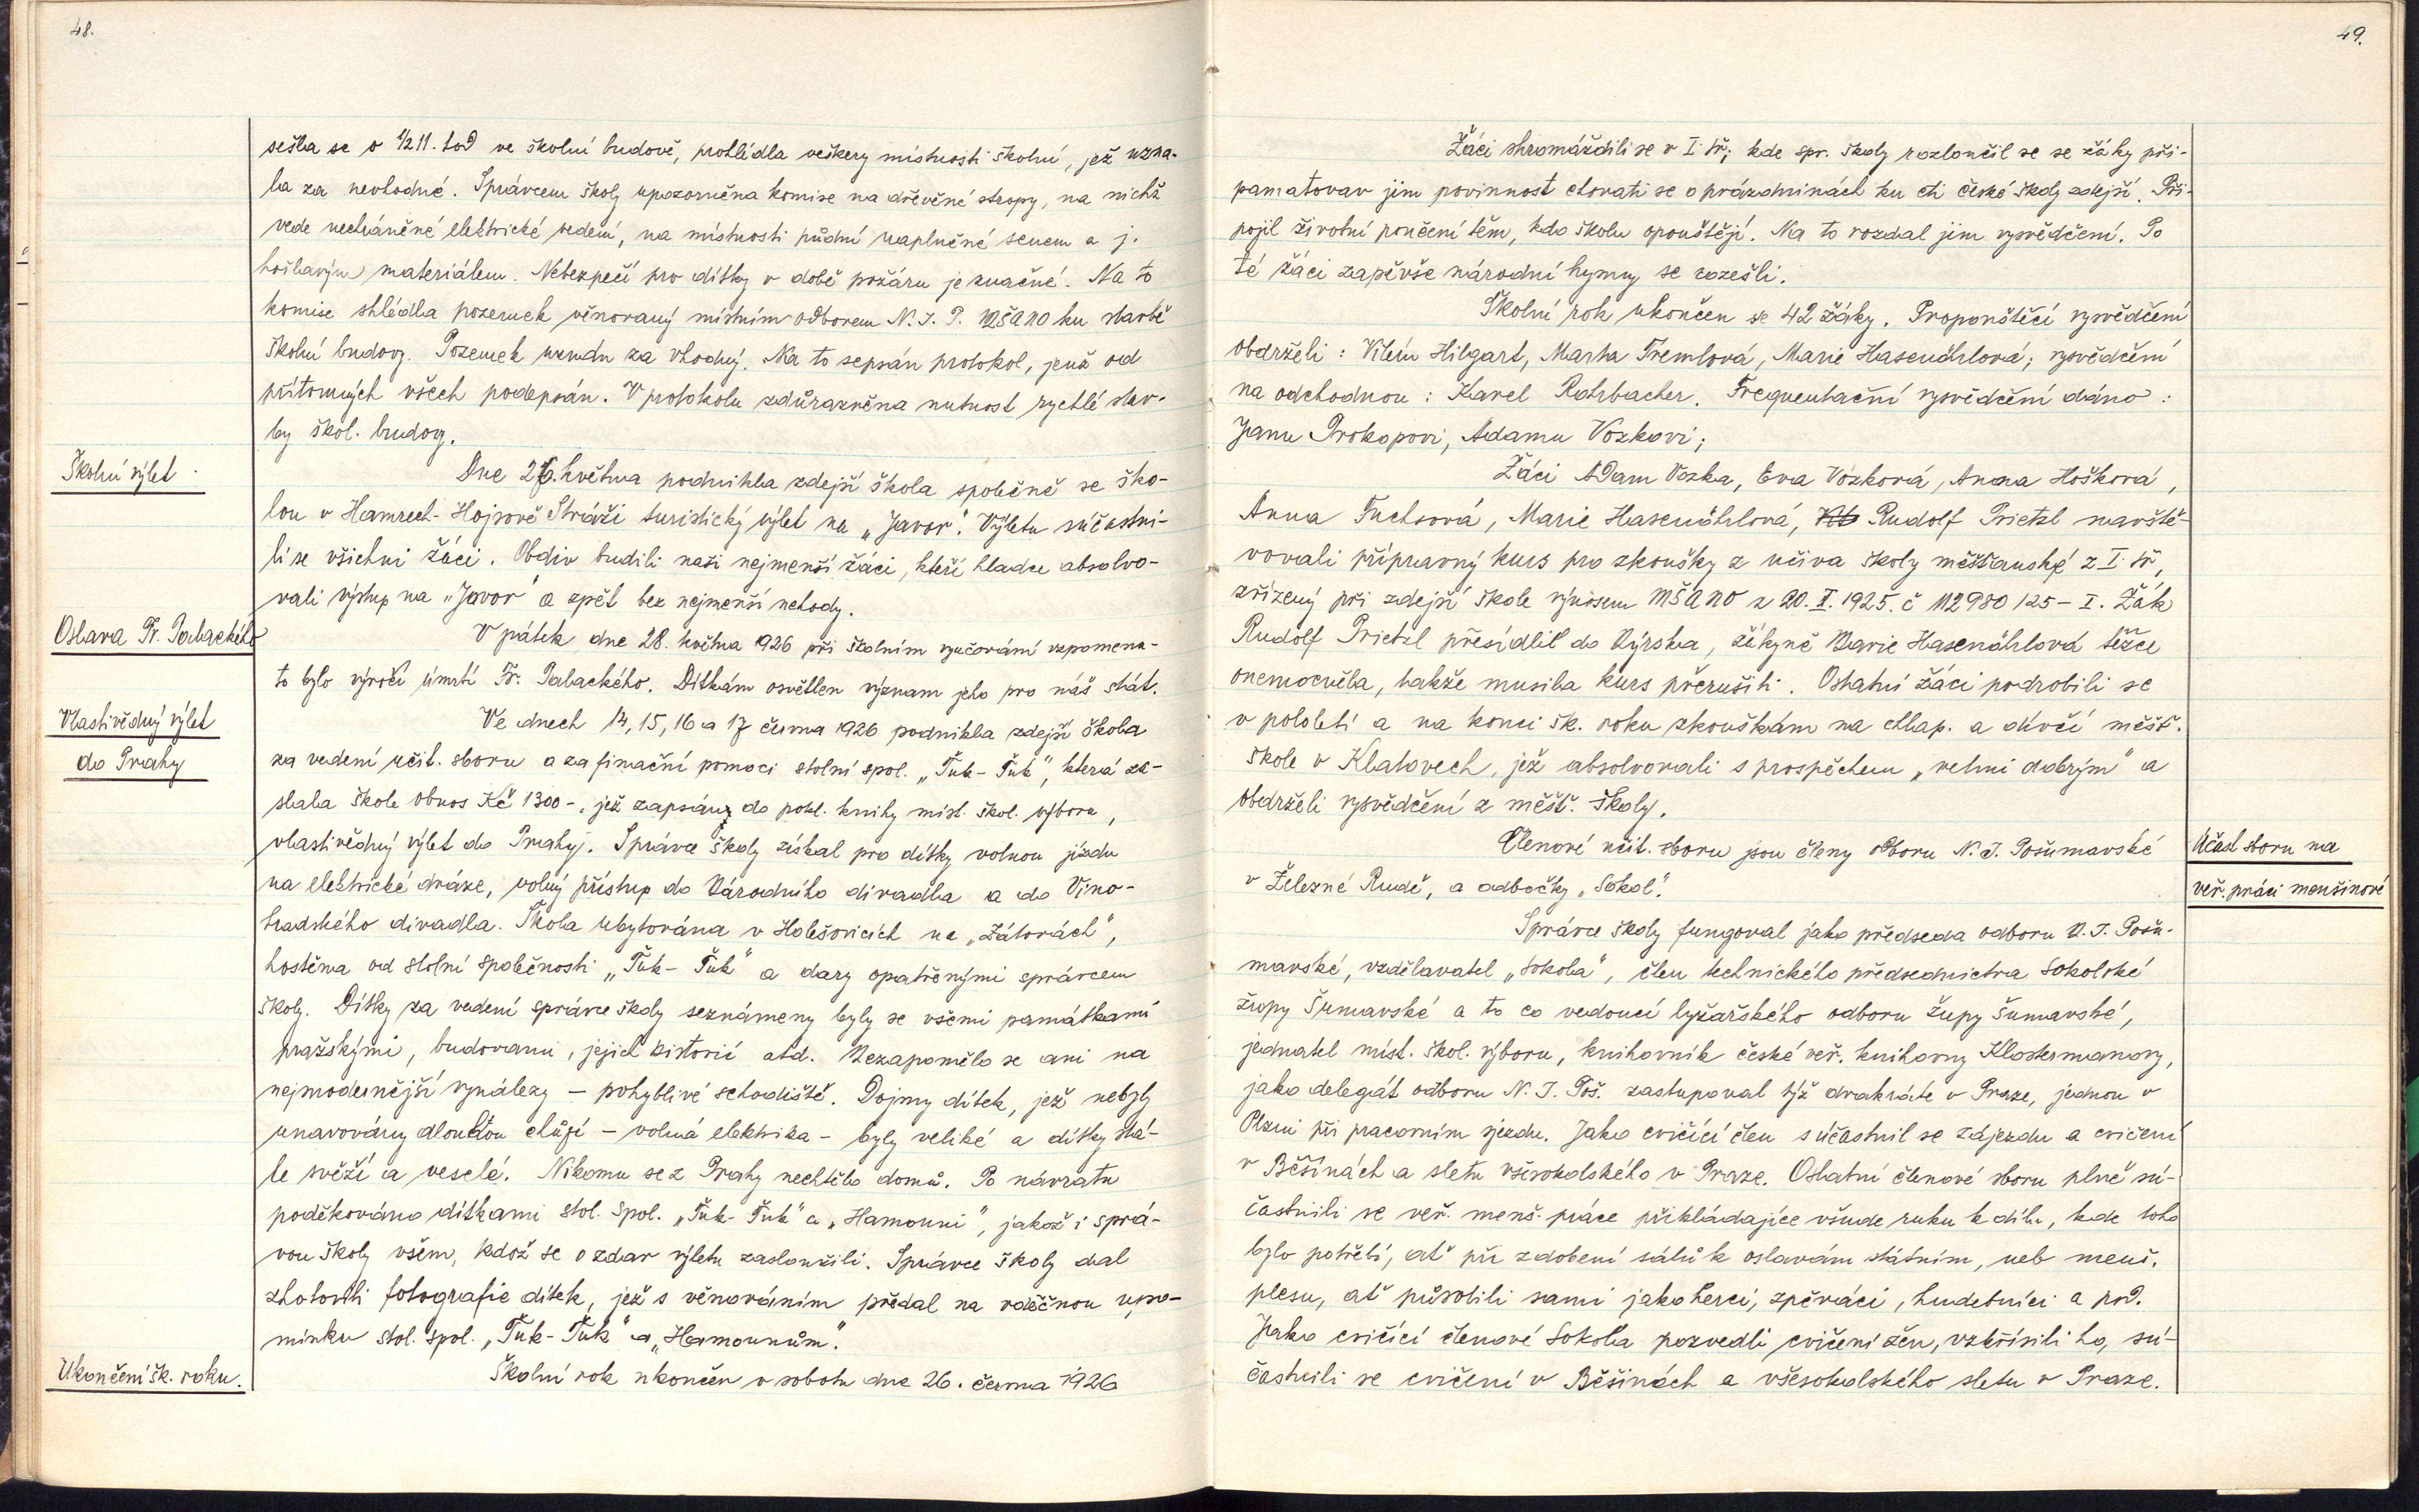 48.
sešla se o 1/2 11. hod ve školní budově, prohlédla veškery místnosti školní, jež uzna-
la za nevhodné. Správcem školy upozorněna komise na dřevěné stropy, na nichž
vede nechráněné elektrické vedení, na místnosti půdní naplněné senem a j.
hořlavým materiálem. Nebezpečí pro dítky v době požáru je značné. Na to
komise shlédla pozemek věnovaný místním odborem N. J. P. MŠANO ku stavbě
školní budovy. Pozemek uznán za vhodný. Na to sepsán protokol, jenž od
přítomných všech podepsán. V protokolu zdůrazněna nutnost rychlé stav-
by škol. budovy.
Školní výlet.
Dne 26. května podnikla zdejší škola společně se ško-
lou v Hamrech-Hojsově Stráži turistický výlet na „Javor". Výletu súčastni-
li se všichni žáci. Obdiv budili naši nejmenší žáci, kteří hladce absolvo-
vali výstup na „Javor" a zpět bez nejmenší nehody.
Oslava Fr. Palackého
V pátek dne 28. května 1926 při školním vyučování vzpomenu-
to bylo výročí úmrtí Fr. Palackého. Dítkám osvětlen význam jeho pro náš stát.
Vlastivědný výlet
do Prahy
Ve dnech 14, 15, 16 a 17 června 1926 podnikla zdejší škola
za vedení učit. sboru a za finační pomoci stolní spol. „Ťuk-Ťuk", která za-
slala škole obnos Kč 1300-, jež zapsány do pokl. knihy míst. škol. výboru,
vlastivědný výlet do Prahy. Správce školy získal pro dítky volnou jízdu
na elektrické dráze, volný přístup do Národního divadla a do Vino-
hradského divadla. Škola ubytována v Holešovicích na „Zátorách",
hostěna od stolní společnosti „Ťuk-Ťuk" a dary opatřenými správcem
školy. Dítky za vedení správce školy seznámeny byly se všemi památkami
pražskými, budovami, jejich historií atd. Nezapomělo se ani na
nejmodernější vynálezy - pohyblivé schodiště. Dojmy dítek, jež nebyly
unavovány dlouhou chůzí - volná elektrika - byly veliké a dítky stá-
le svěží a veselé. Nikomu se z Prahy nechtělo domů. Po návratu
poděkováno dítkami stol. spol. „Ťuk-Ťuk" a „Hamouni", jakož i sprá-
vou školy všem, kdož se o zdar výletu zasloužili. Správce školy dal
zhotoviti fotografie dítek, jež s věnováním předal na vděčnou upo-
mínku stol. spol. „Ťuk-Ťuk" a „Hamounům".
Ukončení šk. roku.
Školní rok ukončen v sobotu dne 26. června 1926
49.
Žáci shromáždili se v I. tř., kde spr. školy rozloučil se se žáky při-
pamatovav jim povinnost chovati se o prázdninách ku cti české školy zdejší. Při-
pojil životní poučení těm, kdo školu opouštějí. Na to rozdal jim vysvědčení. Po
té žáci zapěvše národní hymny se rozešli.
Školní rok ukončen se 42 žáky. Propouštěcí vysvědčení
obdrželi: Vilém Hilgart, Marta Tremlová, Marie Hasenöhrlová; vysvědčení
na odchodnou: Karel Rohrbacher. Frequentační vysvědčení dáno:
Janu Prokopovi, Adamu Vozkovi;
Žáci Adam Vozka, Eva Vozková, Anna Hošková,
Anna Fuchsová, Marie Hasenöhrlová, Rudolf Prietzl navště-
vovali přípravný kurs pro zkoušky z učiva školy měšťanské z I. tř,
zřízený při zdejší škole výnosem MŠANO z 20. X. 1925. č 112980/25-I. Žák
Rudolf Prietzl přesídlil do Nýrska, žákyně Marie Hasenöhrlová těžce
onemocněla, takže musila kurs přerušiti. Ostatní žáci podrobili se
v pololetí a na konci šk. roku zkouškám na chlap. a dívčí měšť.
škole v Klatovech, již absolvovali s prospěchem „velmi dobrým" a
obdrželi vysvědčení z měšť. školy.
Účast sboru na
veř. práci menšinové
Členové učit. sboru jsou členy odboru N. J. Pošumavské
v Železné Rudě, a odbočky „Sokol".
Správce školy fungoval jako předseda odboru N. J. Pošu-
mavské, vzdělavatel „Sokola", člen technického předsednictva Sokolské
župy Šumavské a to co vedoucí lyžařského odboru župy Šumavské,
jednatel míst. škol. výboru, knihovník české veř. knihovny Klostermanovy,
jako delegát odboru N. J. Poš. zastupoval týž dvakráte v Praze, jednou v
Plzni při pracovním sjezdu. Jako cvičící člen súčastnil se zájezdu a cvičení
v Běšinách a sletu všesokolského v Praze. Ostatní členové sboru plně sú-
častnili se veř. menš. práce přikládajíce všude ruku k dílu, kde toho
bylo potřebí, ať při zdobení sálů k oslavám státním, neb menš.
plesu, ať působili sami jako herci, zpěváci, hudebníci a pod.
Jako cvičící členové Sokola pozvedli cvičení žen, vzkřísili ho, sú-
častnili se cvičení v Běšinách a všesokolského sletu v Praze.